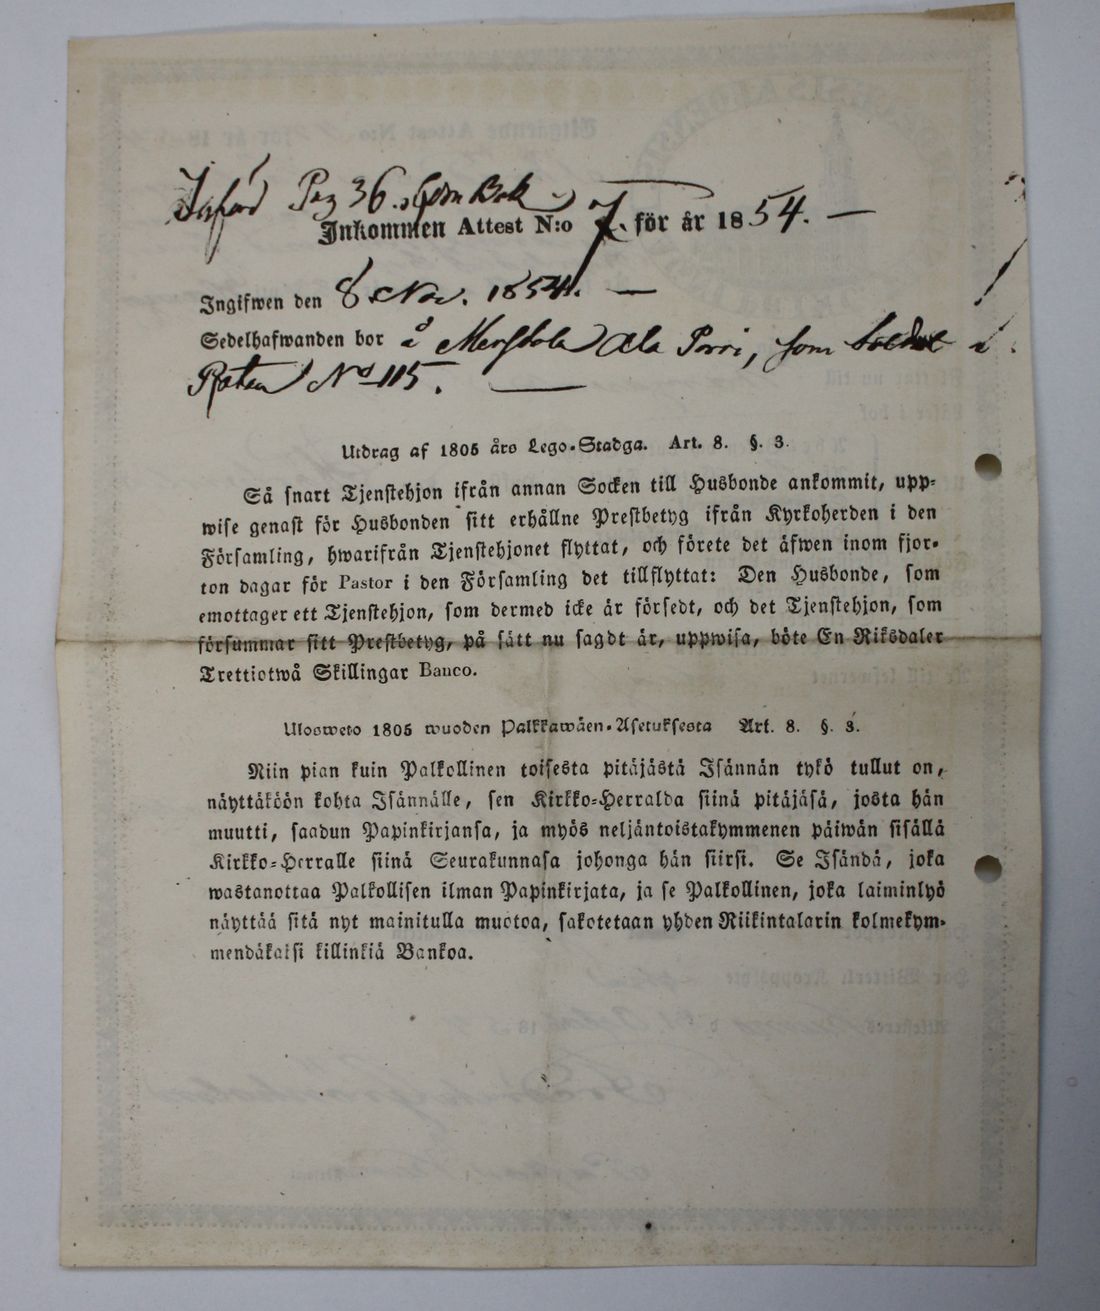 Införd Pag 36. Com Bok
Inkommen Attest N:o 7. för år 1854. —
Ingifwen den 8 Nov. 1854. —
Sedelhafwanden bor å Ala Porri, som Soldat i
Roten No 115. —
Utdrag af 1805 års Lego-Stadga. Art. 8. §. 3.
Så snart Tjenstehjon ifrån annan Socken till Husbonde ankommit, upp-
wise genast för Husbonden sitt erhållne Prestbetyg ifrån Kyrkoherden i den
Församling, hwarifrån Tjenstehjonet flyttat, och förete det äfwen inom fjor-
ton dagar för Pastor i den Församling det tillflyttat: Den Husbonde, som
emottager ett Tjenstehjon, som dermed icke är försedt, och det Tjenstehjon, som
försummar sitt Prestbetyg, på sätt nu sagdt är, uppwisa, böte En Riksdaler
Trettiotwå Skillingar Banco.
Ulosweto 1805 wuoden Palkkawäen-Asetuksesta Art. 8. §. 3.
Niin pian kuin Palkollinen toisesta pitäjästä Isännän tykö tullut on,
näyttäköön kohta Isännälle, sen Kirkko-Herralda siinä pitäjäsä, josta hän
muutti, saadun Papinkirjansa, ja myös neljäntoistakymmenen päiwän sisällä
Kirkko-Herralle siinä Seurakunnasa johonga hän siirsi. Se Isändä, joka
wastanottaa Palkollisen ilman Papinkirjata, ja se Palkollinen, joka laiminlyö
näyttää sitä nyt mainitulla muotoa, sakotetaan yhden Riikintalarin kolmekym-
mendäkaksi killinkiä Bankoa.